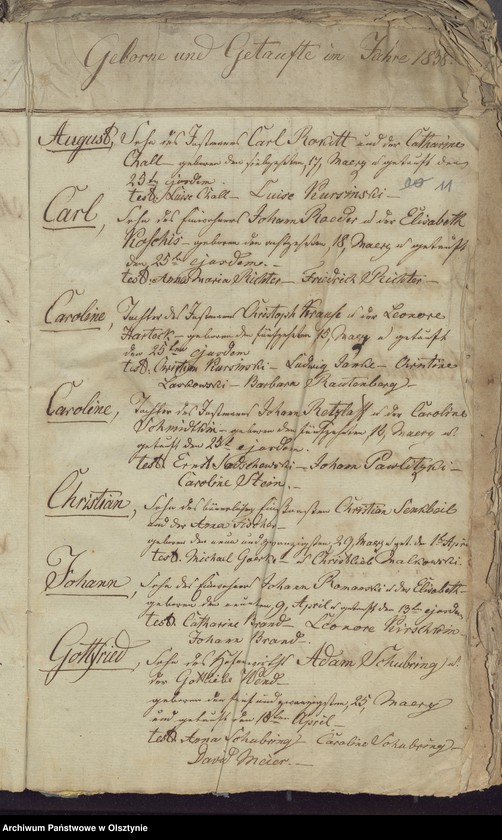 Geborne und Getaufte im Jahre 1838.
August, Sohn des Instmanns Carl Rokitt und der Catharine
Chall – geboren den siebzehnten, 17, Maerz u getauft den
25ten ejusdem.
test. Luise Chall – Luise Kursinski –
11
Carl, Sohn des Johann Raeder u der Elisabeth
Koschis – geboren den achtzehnten 18, Maerz u getauft
den 25ten ejusdem. –
test. Anna Maria Richter – Friedrich Richter –
Caroline, Tochter des Instmanns Christoph Krause u der Leonore
Harteck – geboren den 15, Maerz u getauft
den 25ten ejusdem
test. Christian Kursinski – Ludwig Janke – Christine
Laskowski – Barbara Rautenberg –
Caroline, Tochter des Instmanns Johann Retzlaff u der Caroline
Schmidtkin – geboren den Maerz u.
getauft den 25t ejusdem.
test. Ernst – Johann Pawlitzki –
Caroline Stein. –
Christian, Sohn des Christian Senkbeil
und der Anna
geboren den neun und zwanzigsten, 29, Maerz u get. den 1t April
test. Michael – u Christlieb Malkowski.
Johann, Sohn des Johann Romanski u der Elisabeth –
geboren den neunten, 9, April u getauft den 13ten ejusdem
test. Catharine Brand – Leonore Kirschkin
Johann Brand –
Gottfried, Sohn des Adam Schubring, u.
der Gottliebe Wend –
geboren den fünf und zwanzigsten, 25, Maerz
und getauft den April –
test. Anna Schubring – Caroline Schubring –
David Meier. –
Archiwum Państwowe w Olsztynie